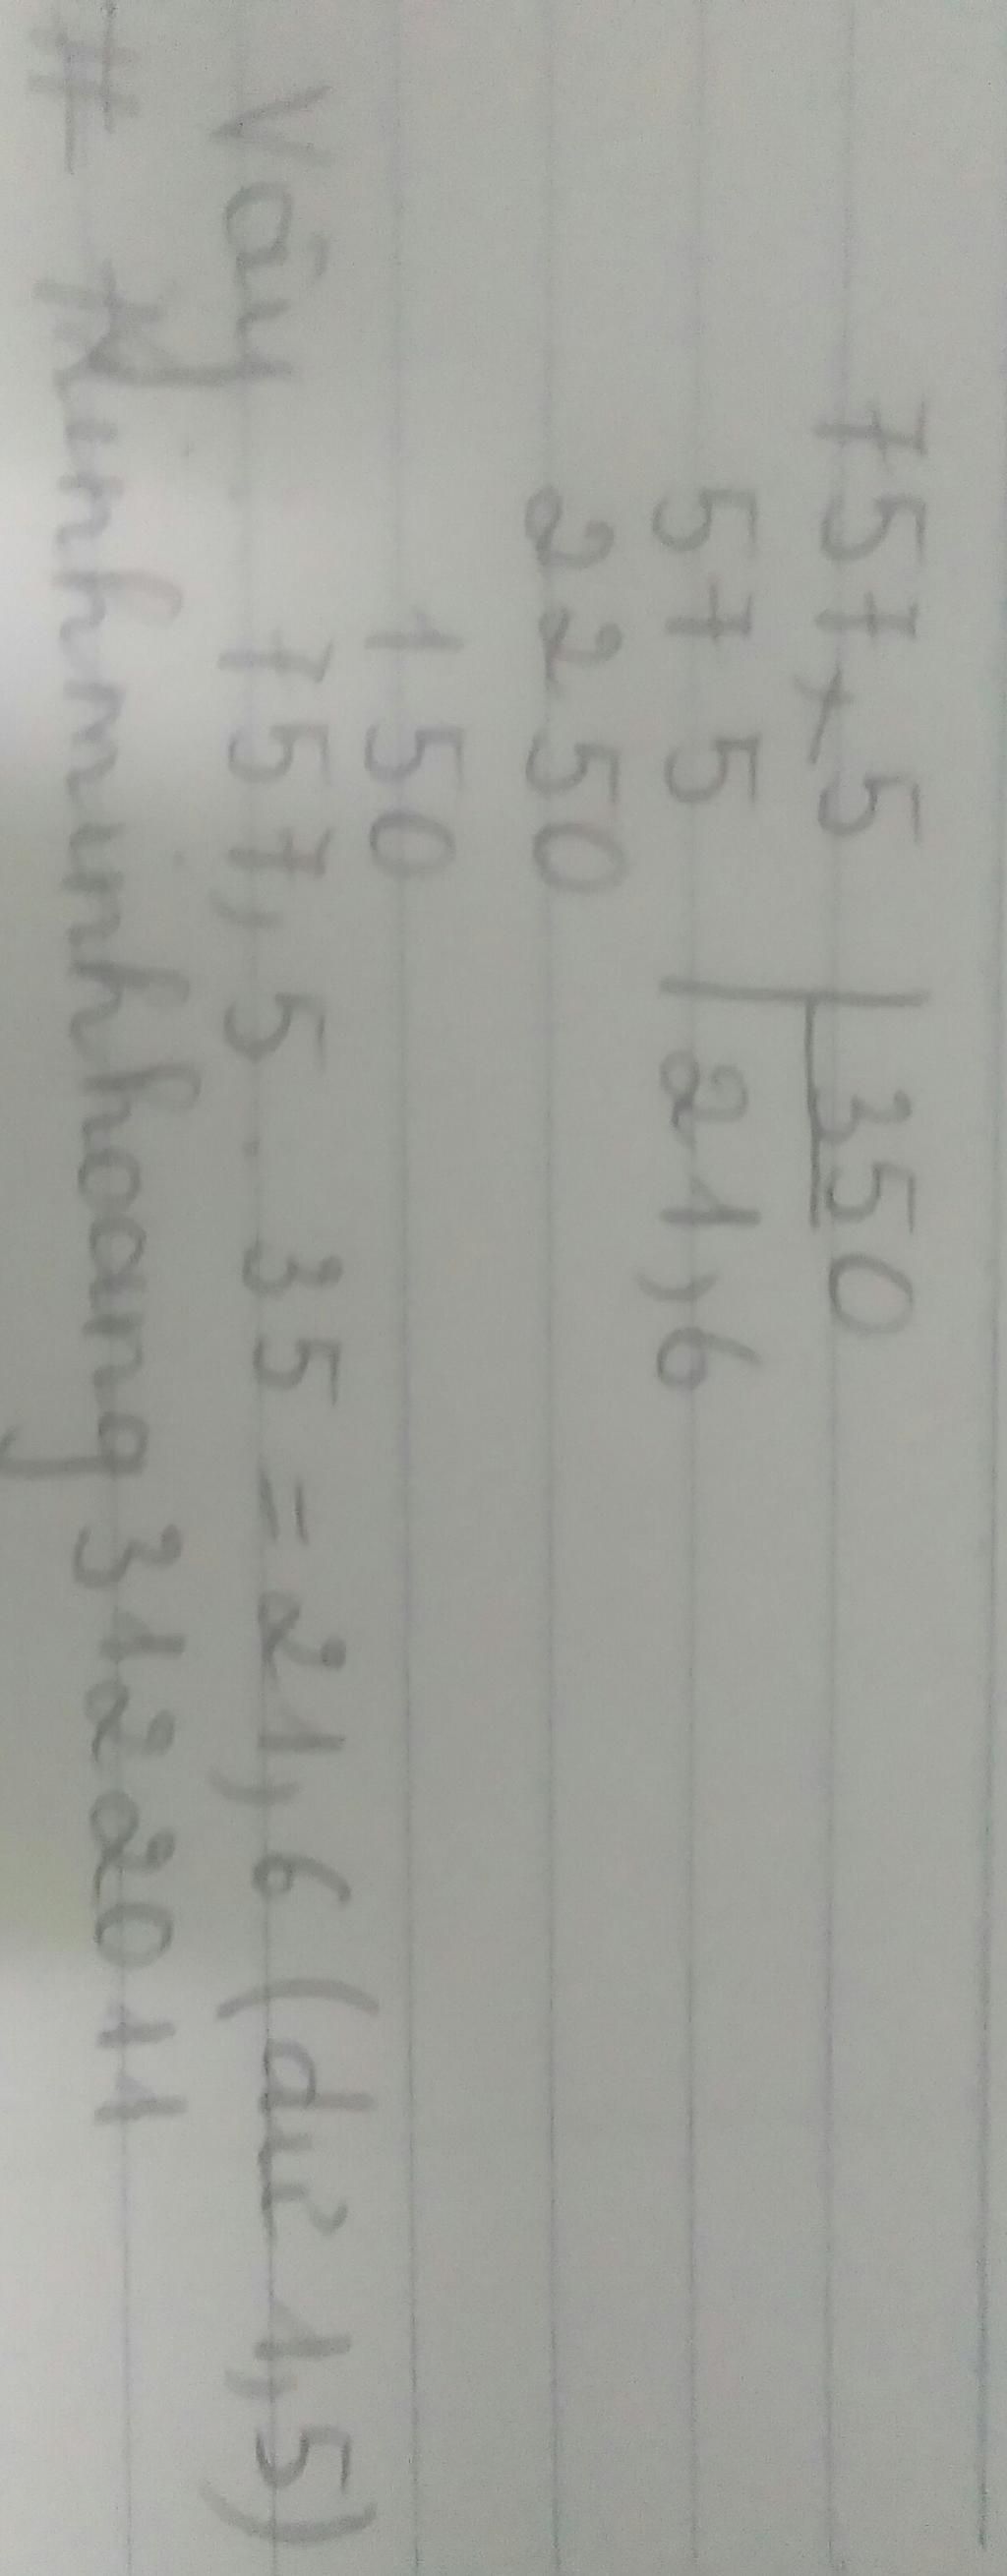 757,5 | 350
57 5 | 21,6
22 50
1 50
Vậy 757,5 : 35 = 21,6 (dư 1,5)
# Ninhminhhoang3122011